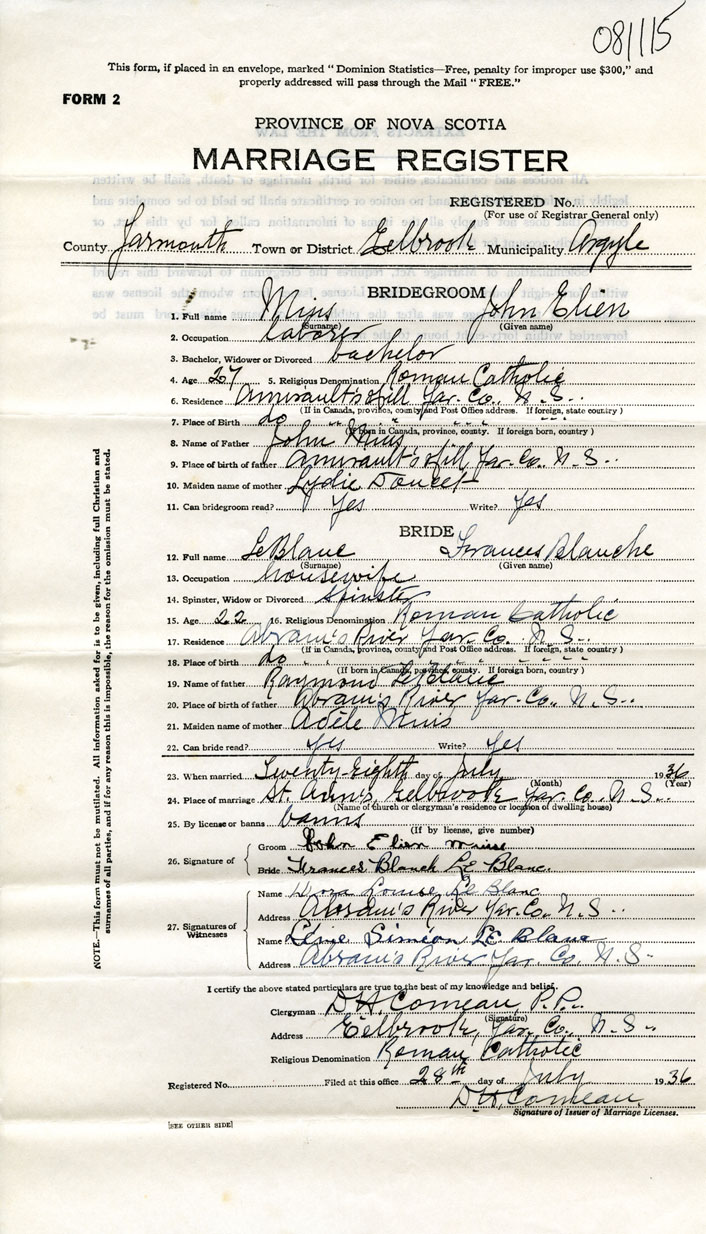 081115
This form, if placed in an envelope, marked "Dominion Statistics—Free, penalty for improper use $300," and
properly addressed will pass through the Mail "FREE."
FORM 2
PROVINCE OF NOVA SCOTIA
MARRIAGE REGISTER
REGISTERED No.
(For use of Registrar General only)
County Yarmouth Town or District Eelbrook Municipality Argyle
BRIDEGROOM
1. Full name Mius John Elien
(Surname) (Given name)
2. Occupation laborer
3. Bachelor, Widower or Divorced bachelor
4. Age 27 5. Religious Denomination Roman Catholic
6. Residence Amirault's Hill Yar. Co. N. S.
(If in Canada, province, county and Post Office address. If foreign, state country)
7. Place of Birth do " " " " "
(If born in Canada, province, county. If foreign born, country)
8. Name of Father John Mius
9. Place of birth of father Amirault's Hill Yar. Co. N. S.
10. Maiden name of mother Lydie Doucet
11. Can bridegroom read? Yes Write? Yes
BRIDE
12. Full name LeBlanc Frances Blanche
(Surname) (Given name)
13. Occupation housewife
14. Spinster, Widow or Divorced spinster
15. Age 22 16. Religious Denomination Roman Catholic
17. Residence Abram's River Yar. Co. N. S.
(If in Canada, province, county and Post Office address. If foreign, state country)
18. Place of birth do " " " " "
(If born in Canada, province, county. If foreign born, country)
19. Name of father Raymond LeBlanc
20. Place of birth of father Abram's River Yar. Co. N. S.
21. Maiden name of mother Adèle Mius
22. Can bride read? Yes Write? Yes
23. When married Twenty-Eighth day of July 1936
(Month) (Year)
24. Place of marriage St. Ann's, Eelbrook Yar. Co. N. S.
(Name of church or clergyman's residence or location of dwelling house)
25. By license or banns banns
(If by license, give number)
26. Signature of
Groom John Elien Muise
Bride Frances Blanch Le Blanc.
27. Signatures of Witnesses
Name Louise Le Blanc
Address Abram's River Yar. Co. N. S.
Name Siméon LE Blanc
Address Abram's River Yar. Co. N. S.
I certify the above stated particulars are true to the best of my knowledge and belief.
Clergyman D. H. Comeau, P.P.
(Signature)
Address Eelbrook, Yar. Co., N. S.
Religious Denomination Roman Catholic
Registered No. Filed at this office 28th day of July 1936
D. H. Comeau
Signature of Issuer of Marriage Licenses.
[SEE OTHER SIDE]
NOTE.—This form must not be mutilated. All information asked for is to be given, including full Christian and
surnames of all parties, and if for any reason this is impossible, the reason for the omission must be stated.